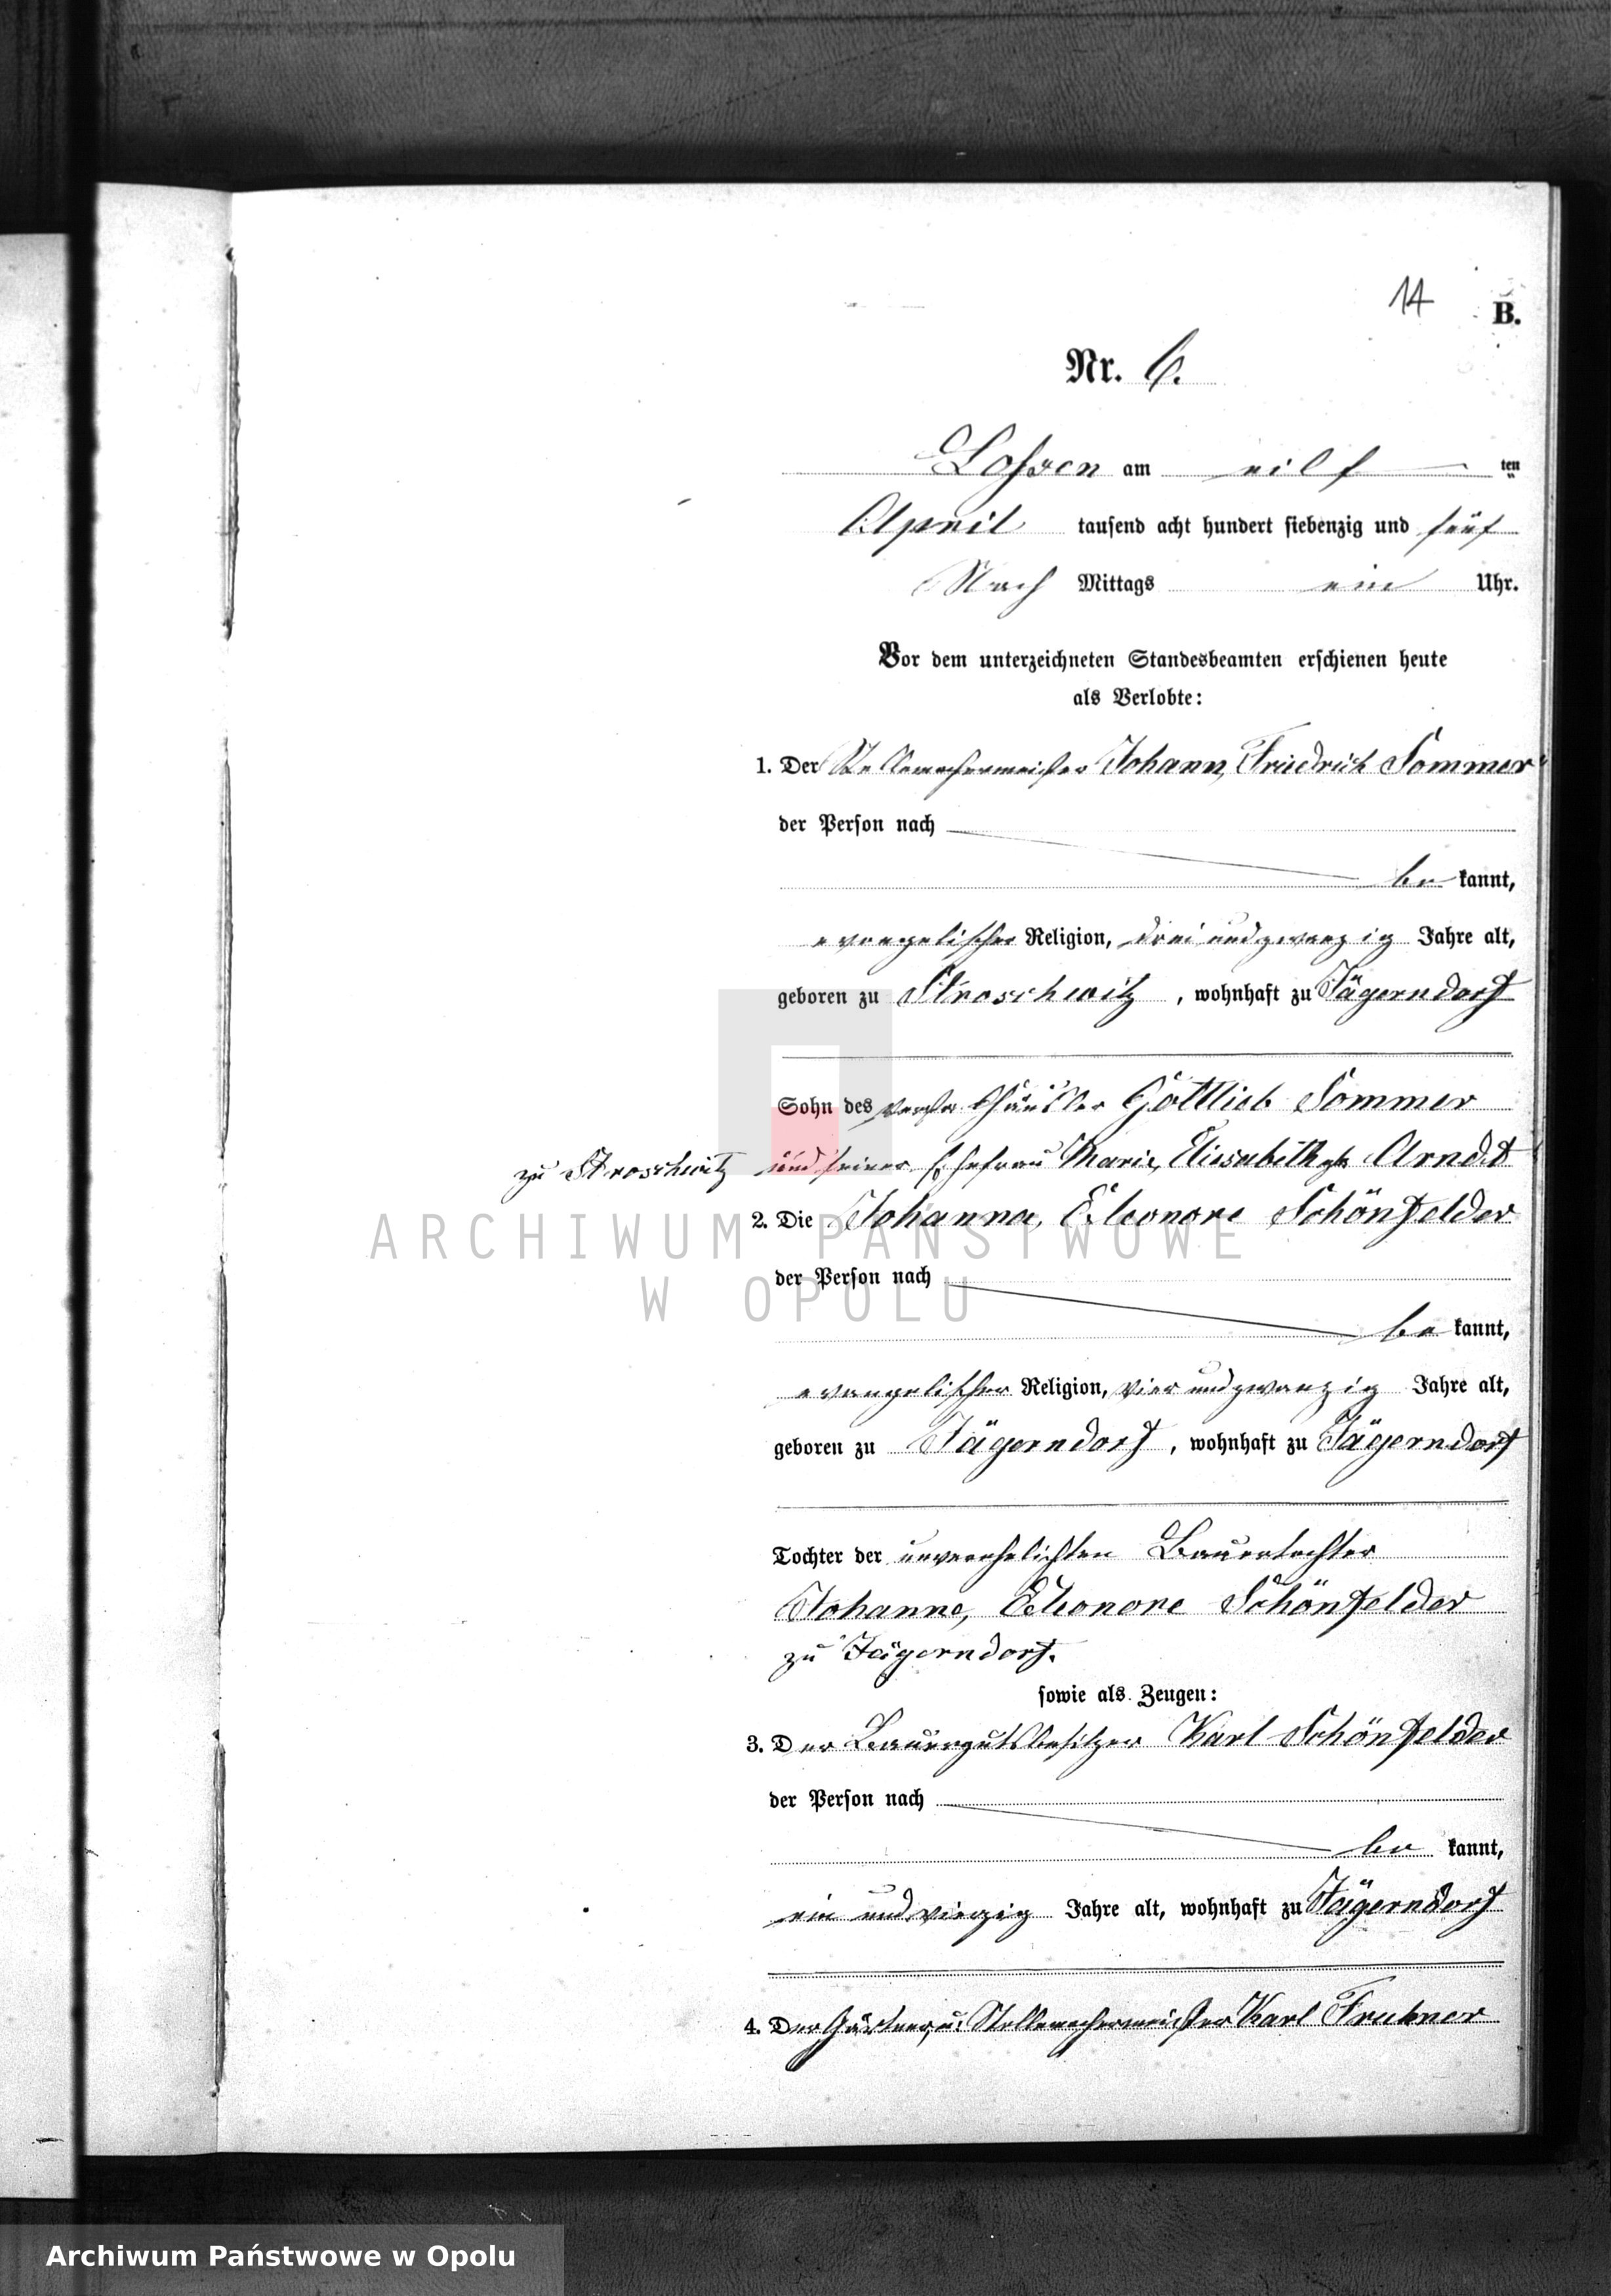 14
B.
Nr. 6.
Lossen am eilf ten
April tausend acht hundert siebenzig und fünf
Nach Mittags ein Uhr.
Vor dem unterzeichneten Standesbeamten erschienen heute
als Verlobte:
1. Der Stellmachermeister Johann, Friedrich Sommer
der Person nach
be kannt,
evangelischer Religion, drei und zwanzig Jahre alt,
geboren zu Stroschwitz, wohnhaft zu Jägerndorf
Sohn des Häusler Gottlieb Sommer
zu Stroschwitz und seiner Ehefrau Marie, Elisabeth gb Arndt
2. Die Johanna, Eleonore Schönfelder
der Person nach
be kannt,
evangelischer Religion, vier und zwanzig Jahre alt,
geboren zu Jägerndorf, wohnhaft zu Jägerndorf
Tochter der unverehelichten Bauertochter
Johanne, Eleonore Schönfelder
zu Jägerndorf.
sowie als Zeugen:
3. Der Bauergutsbesitzer Karl Schönfelder
der Person nach
be kannt,
ein und vierzig Jahre alt, wohnhaft zu Jägerndorf
4. Der Gärtner u. Stellmachermeister Karl
ARCHIWUM PAŃSTWOWE
W OPOLU
Archiwum Państwowe w Opolu